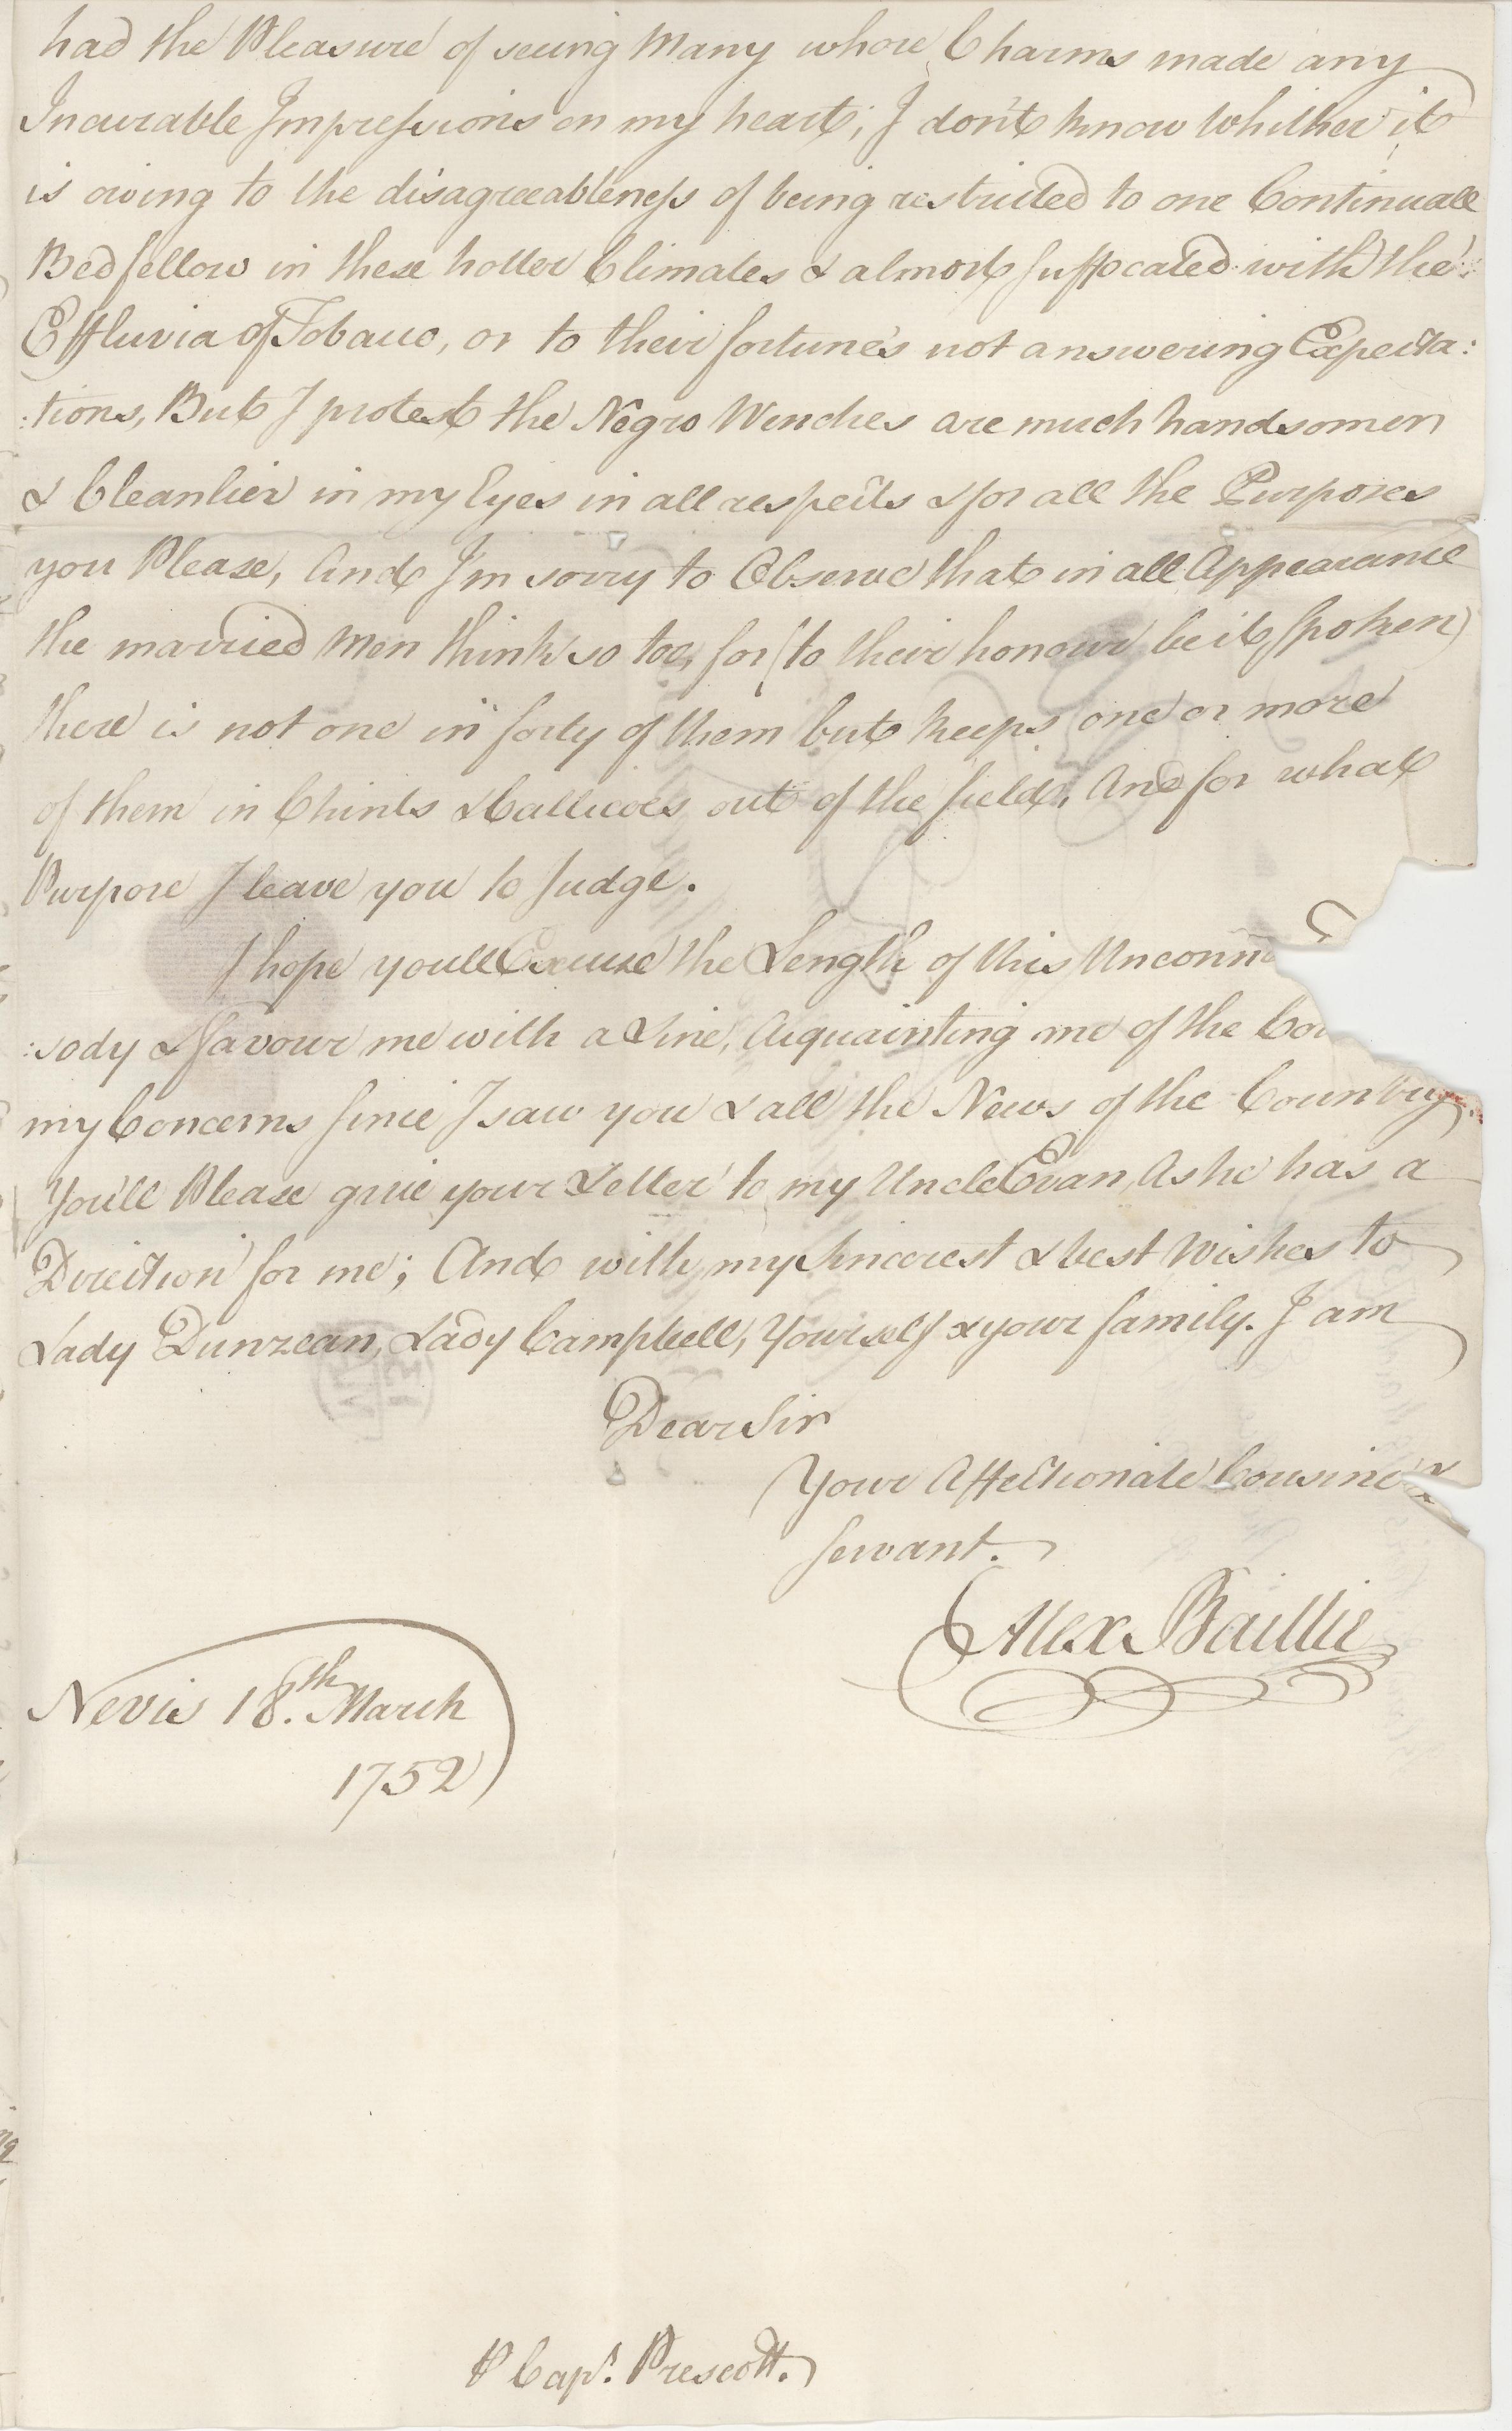 had the Pleasure of seeing Many whose Charms made any
Incurable Impressions on my heart; I don't know Whither it
is owing to the disagreeableness of being restricted to one Continuall
Bedfellow in these hotter Climates & almost suffocated with the
Effluvia of Tobacco, or to their fortune's not answering Expecta:
:tions, But I protest the Negro Wenches are much handsomer
& Cleanlier in my Eyes in all respects & for all the Purposes
you Please, And I'm sorry to Observe that in all Appearance
the married Men think so too, for (to their honour be it spoken)
there is not one in forty of them but keeps one or more
of them in Chints & Callicoes out of the field, And for what
Purpose I leave you to Judge.
I hope youll Excuse the Length of this Unconn
:sody & favour me with a Line, Acquainting me of the Co
my Concerns since I saw you & all the News of the Country.
You'll Please give your Letter to my Uncle Evan, As he has a
Direction for me; And with my Sincerest & best Wishes to
Lady Dunzean, Lady Campbell, Yourself & your family. I am
Dear Sir
Your Affectionate Cousin &
Servant.
Alex Baillie
Nevis 18.th March
1752
P Capt. Prescott.